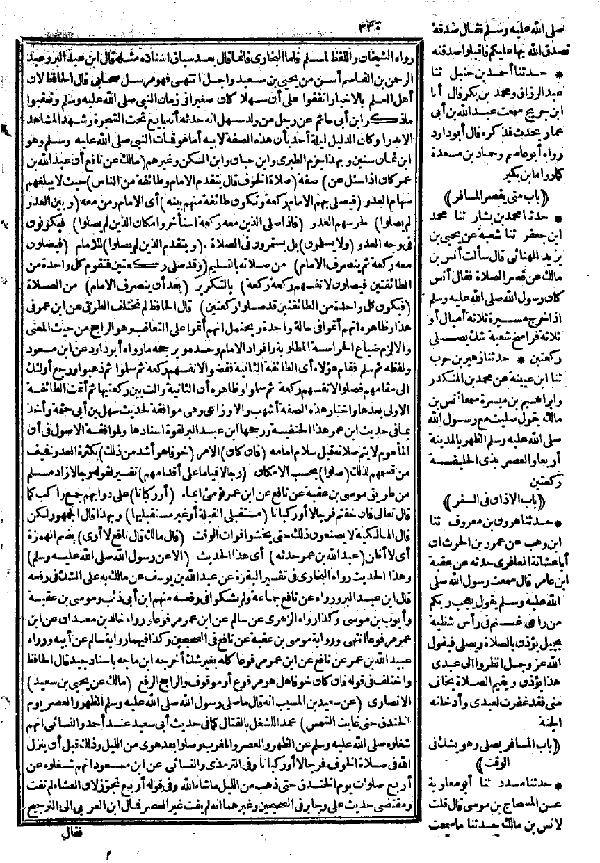 ٣٣٥
صلى الله عليه وسلم فقال صدقة
تصدق الله بها عليكم فاقبلوا صدقته
* حدثنا أحمد بن حنبل ثنا
عبد الرزاق ومحمد بن بكر قال أنا
ابن جريج سمعت عبد الله بن أبي
عمار يحدث فذكره قال أبو داود
رواه أبو عاصم وحماد بن مسعدة
كما رواه ابن بكير
(باب متى يقصر المسافر)
* حدثنا محمد بن بشار ثنا محمد
ابن جعفر ثنا شعبة عن يحيى بن
يزيد الهنائي قال سألت أنس بن
مالك عن قصر الصلاة فقال أنس
كان رسول الله صلى الله عليه وسلم
إذا خرج مسيرة ثلاثة أميال أو
ثلاثة فراسخ شعبة شك يصلي
ركعتين * حدثنا زهير بن حرب
ثنا ابن عيينة عن محمد بن المنكدر
وإبراهيم بن ميسرة سمعا أنس بن
مالك يقول صليت مع رسول الله
صلى الله عليه وسلم الظهر بالمدينة
أربعا والعصر بذي الحليفة
ركعتين
(باب الأذان في السفر)
* حدثنا هرون بن معروف ثنا
ابن وهب عن عمرو بن الحرث أن
أبا عشانة المعافري حدثه عن عقبة
ابن عامر قال سمعت رسول الله صلى
الله عليه وسلم يقول يعجب ربكم
من راعي غنم في رأس شظية
بجبل يؤذن بالصلاة ويصلي فيقول
الله عز وجل انظروا إلى عبدي
هذا يؤذن ويقيم الصلاة يخاف
مني قد غفرت لعبدي وأدخلته
الجنة
(باب المسافر يصلي وهو يشك في
الوقت)
* حدثنا مسدد ثنا أبو معاوية
عن المسحاج بن موسى قال قلت
لأنس بن مالك حدثنا ما سمعت
رواه الشيخان واللفظ لمسلم فأما البخاري فإنما قال بعد سياق إسناده مثله قال ابن عبد البر وعبد
الرحمن بن القاسم أسن من يحيى بن سعيد وأجل انتهى فهو مرسل صحابي قال الحافظ لأن
أهل العلم بالأخبار اتفقوا على أن سهلا كان صغيرا في زمان النبي صلى الله عليه وسلم وتعقبوا
ما ذكره ابن أبي حاتم عن رجل من ولد سهل أنه حدثه أنه بايع تحت الشجرة وشهد المشاهد
إلا بدرا وكان الدليل ليلة أحد بأن هذه الصفة لأبيه أما هو فمات النبي صلى الله عليه وسلم وهو
ابن ثمان سنين وبهذا جزم الطبري وابن حبان وابن السكن وغيرهم (مالك عن نافع أن عبد الله بن
عمر كان إذا سئل عن) صفة (صلاة الخوف قال يتقدم الإمام وطائفة من الناس) حيث لا يبلغهم
سهام العدو (فيصلي بهم الإمام ركعة وتكون طائفة منهم بينه) أي الإمام ومن معه (وبين العدو
لم يصلوا) لحرسهم العدو (فإذا صلى الذين معه ركعة استأخروا مكان الذين لم يصلوا) فيكونون
في وجه العدو (ولا يسلمون) بل يستمرون في الصلاة (ويتقدم الذين لم يصلوا) للإمام (فيصلون
معه ركعة ثم ينصرف الإمام) من صلاته بالتسليم (وقد صلى ركعتين فتقوم كل واحدة من
الطائفتين فيصلون لأنفسهم ركعة ركعة) بالتكرير (بعد أن ينصرف الإمام) من الصلاة
(فيكون كل واحدة من الطائفتين قد صلوا ركعتين) قال الحافظ لم تختلف الطرق عن ابن عمر في
هذا وظاهره أنهم أتموا في حالة واحدة ويحتمل أنهم أتموا على التعاقب وهو الراجح من حيث المعنى
وإلا لزم ضياع الحراسة المطلوبة وإفراد الإمام وحده ويرجحه ما رواه أبو داود عن ابن مسعود
ولفظه ثم سلم فقام هؤلاء أي الطائفة الثانية فقضوا لأنفسهم ركعة ثم سلموا ثم ذهبوا ورجع أولئك
إلى مقامهم فصلوا لأنفسهم ركعة ثم سلموا وظاهره أن الثانية والت بين ركعتيها ثم أتمت الطائفة
الأولى بعدها واختار هذه الصفة أشهب والأوزاعي وهي موافقة لحديث سهل بن أبي حثمة وأخذ
بما في حديث ابن عمر هذا الحنفية ورجحها ابن عبد البر لقوة إسنادها ولموافقة الأصول في أن
المأموم لا يتم صلاته قبل سلام إمامه (فإن كان) الأمر (خوفا هو أشد من ذلك) بكثرة العدو فخيف
من قسمهم لذلك (صلوا) بحسب الإمكان (رجالا قياما على أقدامهم) تفسير لقوله رجالا زاد مسلم
من طريق موسى بن عقبة عن نافع عن ابن عمر تومئ إيماء (أو ركبانا) على دوابهم جمع راكب كما
قال تعالى فإن خفتم فرجالا أو ركبانا (مستقبلي القبلة أو غير مستقبليها) وبهذا قال الجمهور لكن
قال المالكية لا يصنعون ذلك حتى يخشوا فوات الوقت (قال مالك قال نافع لا أرى) بضم الهمزة
أي لا أظن (عبد الله بن عمر حدثه) أي هذا الحديث (إلا عن رسول الله صلى الله عليه وسلم)
وهذا الحديث رواه البخاري في تفسير البقرة عن عبد الله بن يوسف عن مالك به على الشك في رفعه
قال ابن عبد البر ورواه عن نافع جماعة ولم يشكوا في رفعه منهم ابن أبي ذئب وموسى بن عقبة
وأيوب بن موسى وكذا رواه الزهري عن سالم عن ابن عمر مرفوعا ورواه خالد بن معدان عن ابن
عمر مرفوعا انتهى ورواية موسى بن عقبة عن نافع في الصحيحين وكذا فيهما رواية سالم عن أبيه ورواه
عبيد الله بن عمر عن نافع عن ابن عمر مرفوعا كله بغير شك أخرجه ابن ماجه بإسناد جيد قال الحافظ
واختلف في قوله فإن كان خوفا هل هو مرفوع أو موقوف والراجح الرفع (مالك عن يحيى بن سعيد)
الأنصاري (عن سعيد بن المسيب أنه قال ما صلى رسول الله صلى الله عليه وسلم الظهر والعصر يوم
الخندق حتى غابت الشمس) عمدا للشغل بالقتال كما في حديث أبي سعيد عند أحمد والنسائي أنهم
شغلوه صلى الله عليه وسلم عن الظهر والعصر والمغرب وصلوا بعد هوي من الليل وذلك قبل أن ينزل
الله في صلاة الخوف فرجالا أو ركبانا وفي الترمذي والنسائي عن ابن مسعود أنهم شغلوه عن
أربع صلوات يوم الخندق حتى ذهب من الليل ما شاء الله وفي قوله أربع تجوز لأن العشاء لم تفت
ومقتضى حديث علي وجابر في الصحيحين وغيرهما أنه لم يفت غير العصر فمال ابن العربي إلى الترجيح
فقال